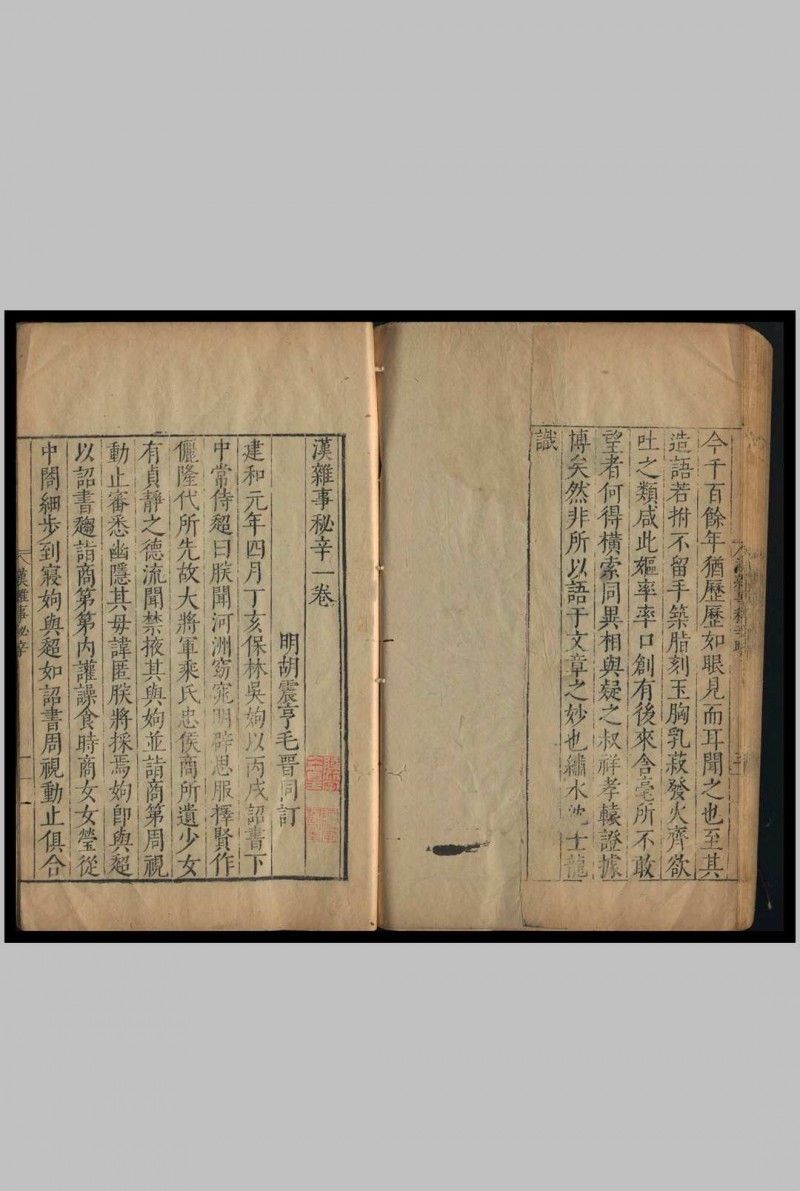 今千百餘年猶歷歷如眼見而耳聞之也至其
造語若拊不留手築脂刻玉胸乳菽發火齊欲
吐之類咸此嫗率率口創有後來含毫所不敢
望者何得橫索同異相與疑之叔祥孝轅證據
博矣然非所以語于文章之妙也繡水沈士龍
識
漢雜事秘辛一卷
明胡震亨毛晉同訂
建和元年四月丁亥保林吳姁以丙戌詔書下
中常侍超曰朕聞河洲窈窕明辟思服擇賢作
儷隆代所先故大將軍乘氏忠侯商所遺少女
有貞靜之德流聞禁掖其與姁並詣商第周視
動止審悉幽隱其毋諱匿朕將採焉姁即與超
以詔書趨詣商第第內讙譟食時商女女瑩從
中閤細步到寢姁與超如詔書周視動止俱合
漢雜事秘辛
一